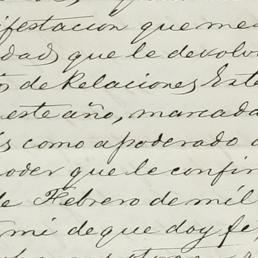 ifestacion que me
dad, que le devolv
de Relaciones Este
este año, marcada
s como apoderado
oder que le confir
de Febrero de mil
mi de que doy fe,